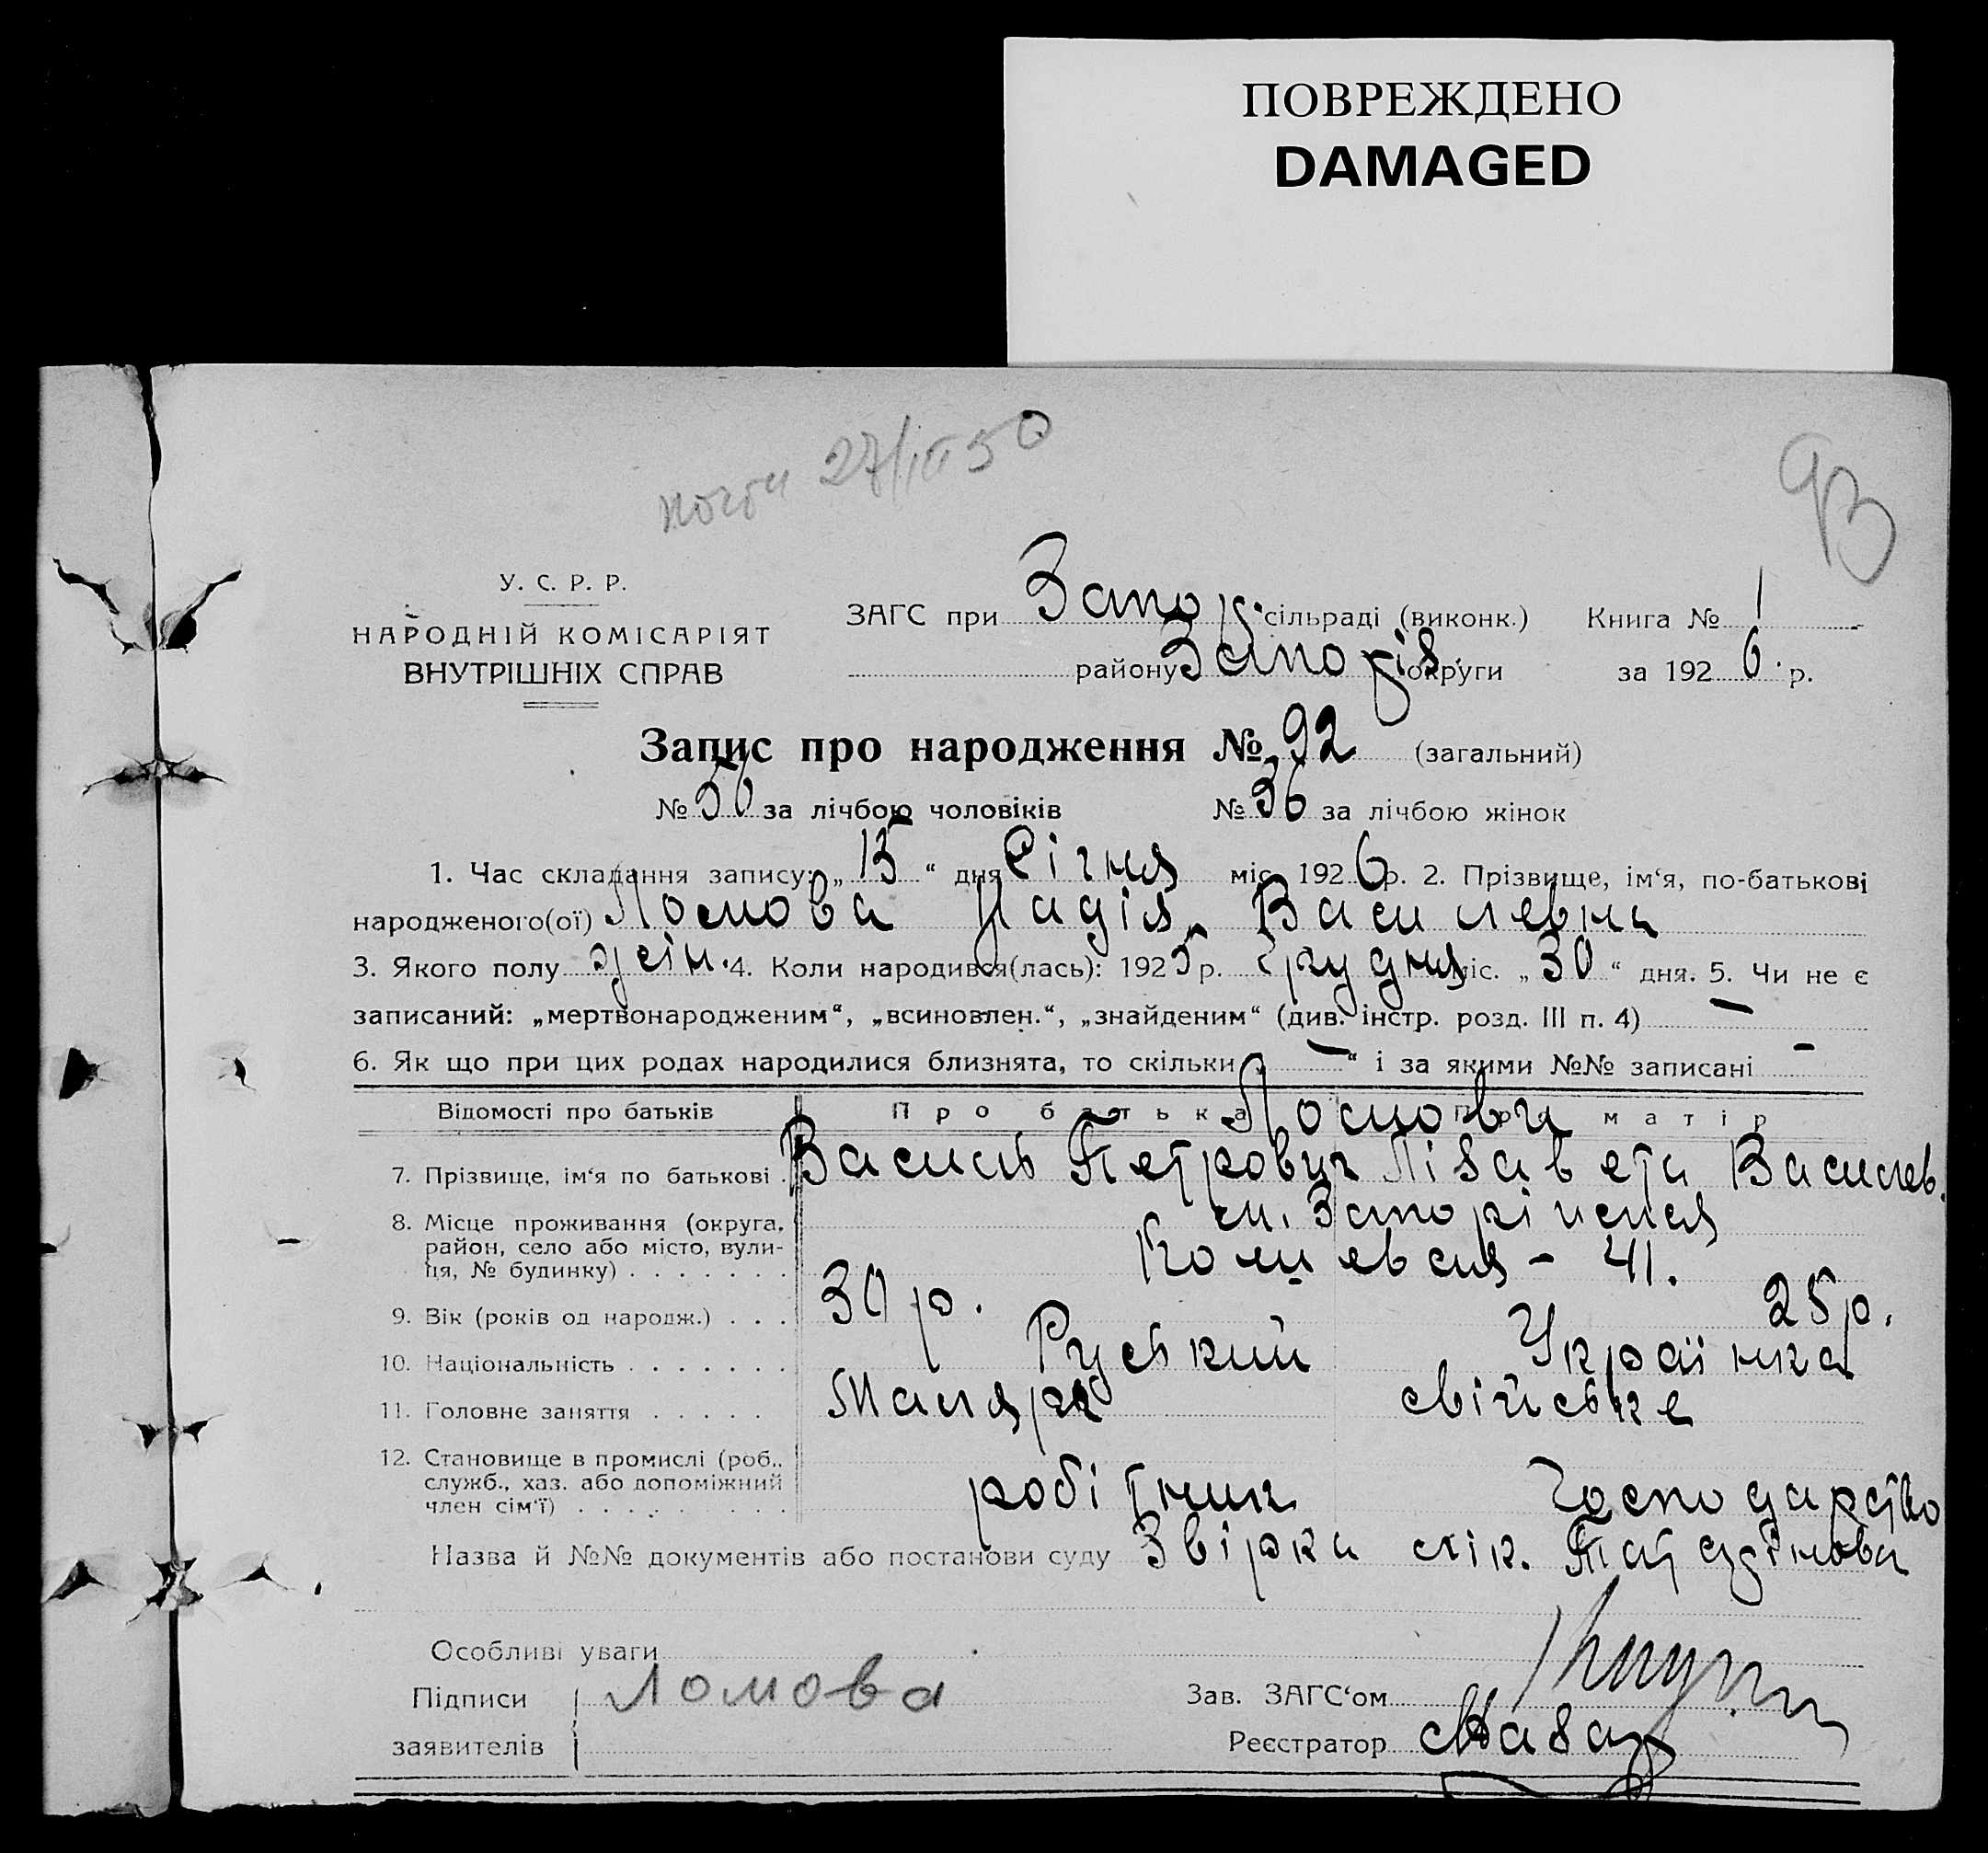 ПОВРЕЖДЕНО
DAMAGED
27/III 50
93
У. С. Р. Р.
НАРОДНІЙ КОМІСАРІЯТ
ВНУТРІШНІХ СПРАВ
ЗАГС при Запор. сільраді (виконк.) Книга № 1
району Запоріз. округи за 1926 р.
Запис про народження № 92 (загальний)
№ 56 за лічбою чоловіків № 36 за лічбою жінок
1. Час складання запису: „15“ дня Січня міс. 1926 р. 2. Прізвище, ім‘я, по-батькові
народженого(ої) Ломова Надія Василевна
3. Якого полу жін. 4. Коли народився(лась): 1925 р. Грудня міс. „30“ дня. 5. Чи не є
записаний: „мертвонародженим“, „всиновлен.“, „знайденим“ (див. інстр. розд. III п. 4) —
6. Як що при цих родах народилися близнята, то скільки „—“ і за якими №№ записані —
Відомості про батьків Про батька Про матір
Ломови
7. Прізвище, ім‘я по батькові Василь Петрович Лізавета Василев.
8. Місце проживання (округа, район, село або місто, вулиця, № будинку) м. Запоріжжя
9. Вік (років од народж.) 30 р. 25 р.
10. Національність Руський Українка
11. Головне заняття Маляр свійське
12. Становище в промислі (роб., служб., хаз. або допоміжний член сім‘ї) робітник господарство
Назва й №№ документів або постанови суду Звірка лік.
Особливі уваги
Підписи Ломова Зав. ЗАГС‘ом
заявителів Реєстратор